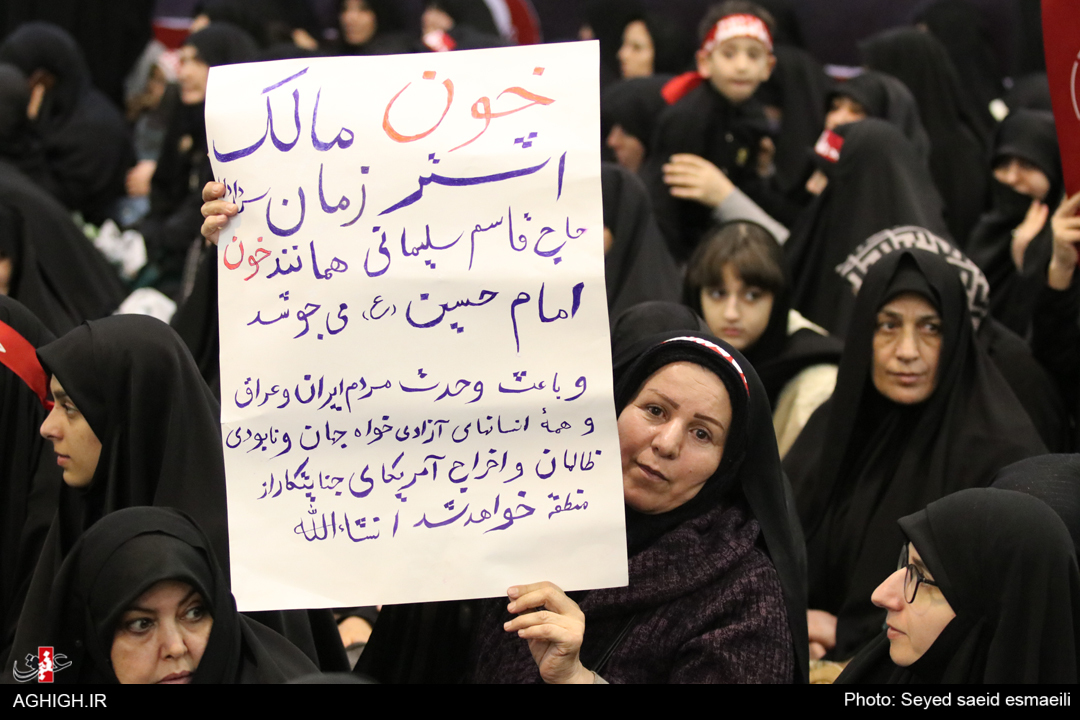 خون مالک
اشتر زمان سردار
حاج قاسم سلیمانی همانند خون
امام حسین (ع) می جوشد
و باعث وحدت مردم ایران و عراق
و همهٔ انسانهای آزادی خواه جهان و نابودی
ظالمان و اخراج آمریکای جنایتکار از
منطقه خواهد شد انشاءالله
عقیق
AGHIGH.IR
Photo: Seyed saeid esmaeili